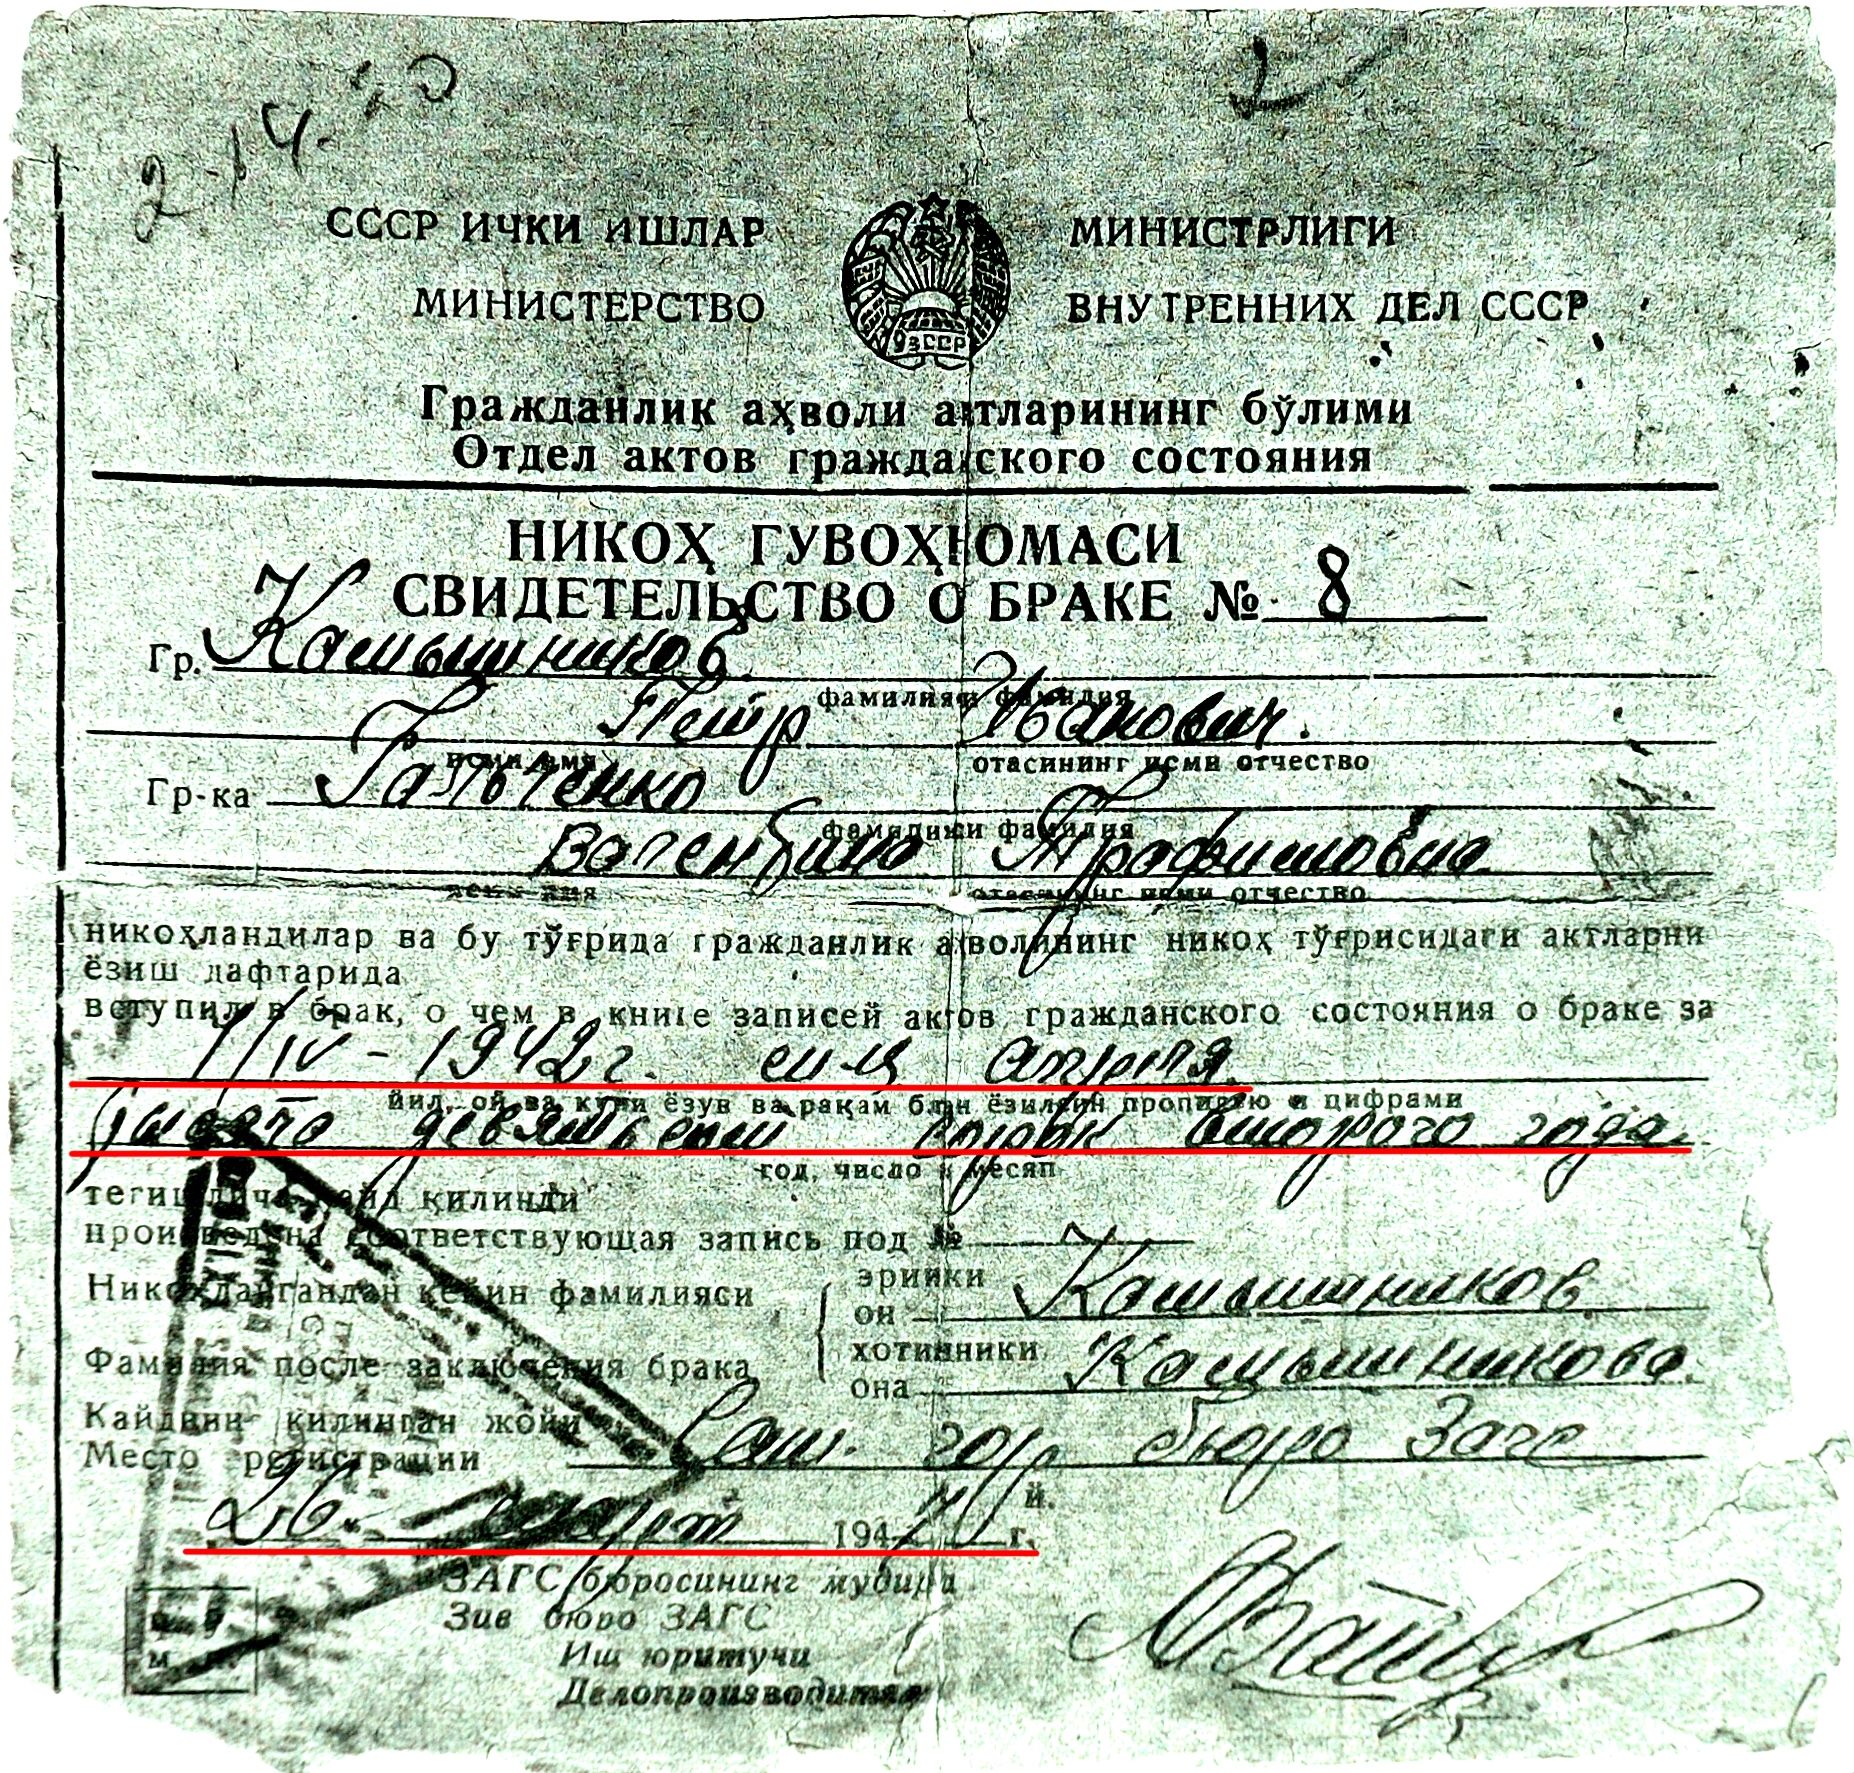 2-14.
2
СССР ИЧКИ ИШЛАР МИНИСТРЛИГИ
МИНИСТЕРСТВО ВНУТРЕННИХ ДЕЛ СССР
ЎзССР
Гражданлик аҳволи актларининг бўлими
Отдел актов гражданского состояния
НИКОҲ ГУВОҲНОМАСИ
СВИДЕТЕЛЬСТВО О БРАКЕ № 8
Гр. Камышников
фамилияси фамилия
Петр Иванович.
исми имя отасининг исми отчество
Гр-ка Гальченко
фамилияси фамилия
Валентина Трофимовна.
отасининг исми отчество
никоҳландилар ва бу тўғрида гражданлик аҳволининг никоҳ тўғрисидаги актларни
ёзиш дафтарида
вступил в брак, о чем в книге записей актов гражданского состояния о браке за
1/IV - 1942 г. апреля
йил, ой ва куни ёзув ва рақам блан ёзилсин прописью и цифрами
тысяча девятьсот сорок второго года.
год, число и месяц
тегишлича қайд қилинди
произведена соответствующая запись под №
Никоҳлангандан кейин фамилияси эрийки
он Камышников
Фамилия после заключения брака хотинники
она Камышникова.
Кайднин қилинган жойи
Место регистрации гор бюро Загс
й.
26 март 194 г.
ЗАГС бюросининг мудири
Зав бюро ЗАГС
Иш юритучи
Делопроизводитель
М.